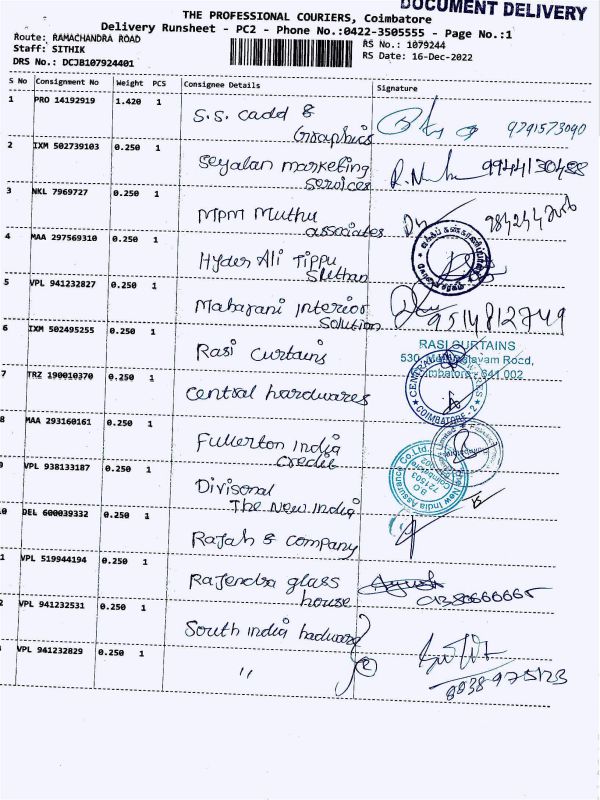 DOCUMENT DELIVERY
THE PROFESSIONAL COURIERS, Coimbatore
Delivery Runsheet - PC2 - Phone No.:0422-3505555 - Page No.:1
Route: RAMACHANDRA ROAD
Staff: SITHIK
DRS No.: DCJB107924401
RS No.: 1079244
RS Date: 16-Dec-2022
S No Consignment No Weight PCS Consignee Details Signature
1 PRO 14192919 1.420 1 S.S. cadd &
Graphics 9791573090
2 IXM 502739103 0.250 1 Seyalan marketing
services 9944130488
3 NKL 7969727 0.250 1 MPM Muthu
associates
4 MAA 297569310 0.250 1 Hyder Ali Tippu
Sulthan
5 VPL 941232827 0.250 1 Maharani interior
solution 9514812749
6 IXM 502495255 0.250 1 Rasi curtains
RASI CURTAINS
530,
Coimbatore - 641 002
7 TRZ 190010370 0.250 1 central hardwares
CENTRAL
COIMBATORE - 2
8 MAA 293160161 0.250 1 Fullerton India
credit
9 VPL 938133187 0.250 1 Divisonal
The New India
New India Assurance Co. Ltd.
B.O.
721503
Coimbatore
0 DEL 600039332 0.250 1 Rajah & company
1 VPL 519944194 0.250 1 Rajendra glass
house
2 VPL 941232531 0.250 1 South india hadware
VPL 941232829 0.250 1 "
2